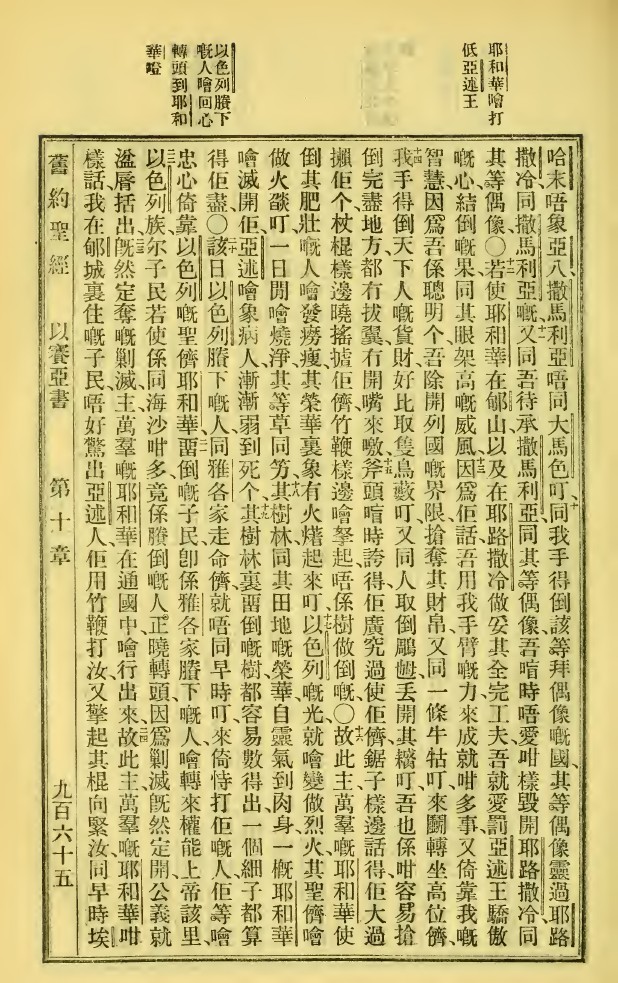 耶和華噲打
低亞述王
以色列賸下
嘅人噲回心
轉頭到耶和
華
哈末唔象亞八、撒馬利亞唔同大馬色叮、十同我手得倒該等拜偶像嘅國、其等偶像靈過耶路
撒冷同撒馬利亞嘅、十一又同吾待承撒馬利亞同其等偶像、吾喑時唔愛咁樣毀開耶路撒冷、同
其等偶像○十二若使耶和華在郇山以及在耶路撒冷做妥其全完工夫、吾就愛罰亞述王驕傲
嘅心結倒嘅果、同其眼架高嘅威風、十三因爲佢話、吾用我手臂嘅力來成就咁多事、又倚靠我嘅
智慧、因爲吾係聰明个、吾除開列國嘅界限、搶奪其財帛、又同一條牛牯叮、來翻轉坐高位儕、
十四我手得倒天下人嘅貨財、好比取隻鳥藪叮、又同人取倒鵰丟開其叮、吾也係咁容易搶
倒完盡地方、都冇拔翼、冇開嘴來噭、十五斧頭喑時誇得佢廣究過使佢儕、鋸子樣邊話得佢大過
攋佢个、杖棍樣邊曉搖佢儕、竹鞭樣邊噲拏起唔係樹做倒嘅、○十六故此主萬羣嘅耶和華使
倒其肥壯嘅人噲發癆瘦、其榮華裏象有火㷮起來叮、十七以色列嘅光就噲變做烈火、其聖儕噲
做火燄叮、一日閒噲燒淨其等草同竻、十八其樹林同其田地嘅榮華、自靈氣到肉身、一概耶和華
噲滅開佢、亞述噲象病人漸漸弱到死个、十九其樹林裏留倒嘅樹都容易數得出、一個細子都算
得佢盡○二十該日以色列賸下嘅人、同雅各家走命儕、就唔同早時叮來倚恃打佢嘅人、佢等噲
忠心倚靠以色列嘅聖儕耶和華、二一留倒嘅子民卽係雅各家賸下嘅人、噲轉來權能上帝該里、
二二以色列族、尔子民若使係同海沙咁多、竟係賸倒嘅人正曉轉頭、因爲剿滅旣然定開、公義就
溢脣括出、二三旣然定奪嘅剿滅、主萬羣嘅耶和華、在通國中噲行出來、二四故此主萬羣嘅耶和華咁
樣話、我在郇城裏住嘅子民、唔好驚出亞述人、佢用竹鞭打汝、又擎起其棍向緊汝、同早時埃
舊約聖經 以賽亞書 第十章 九百六十五